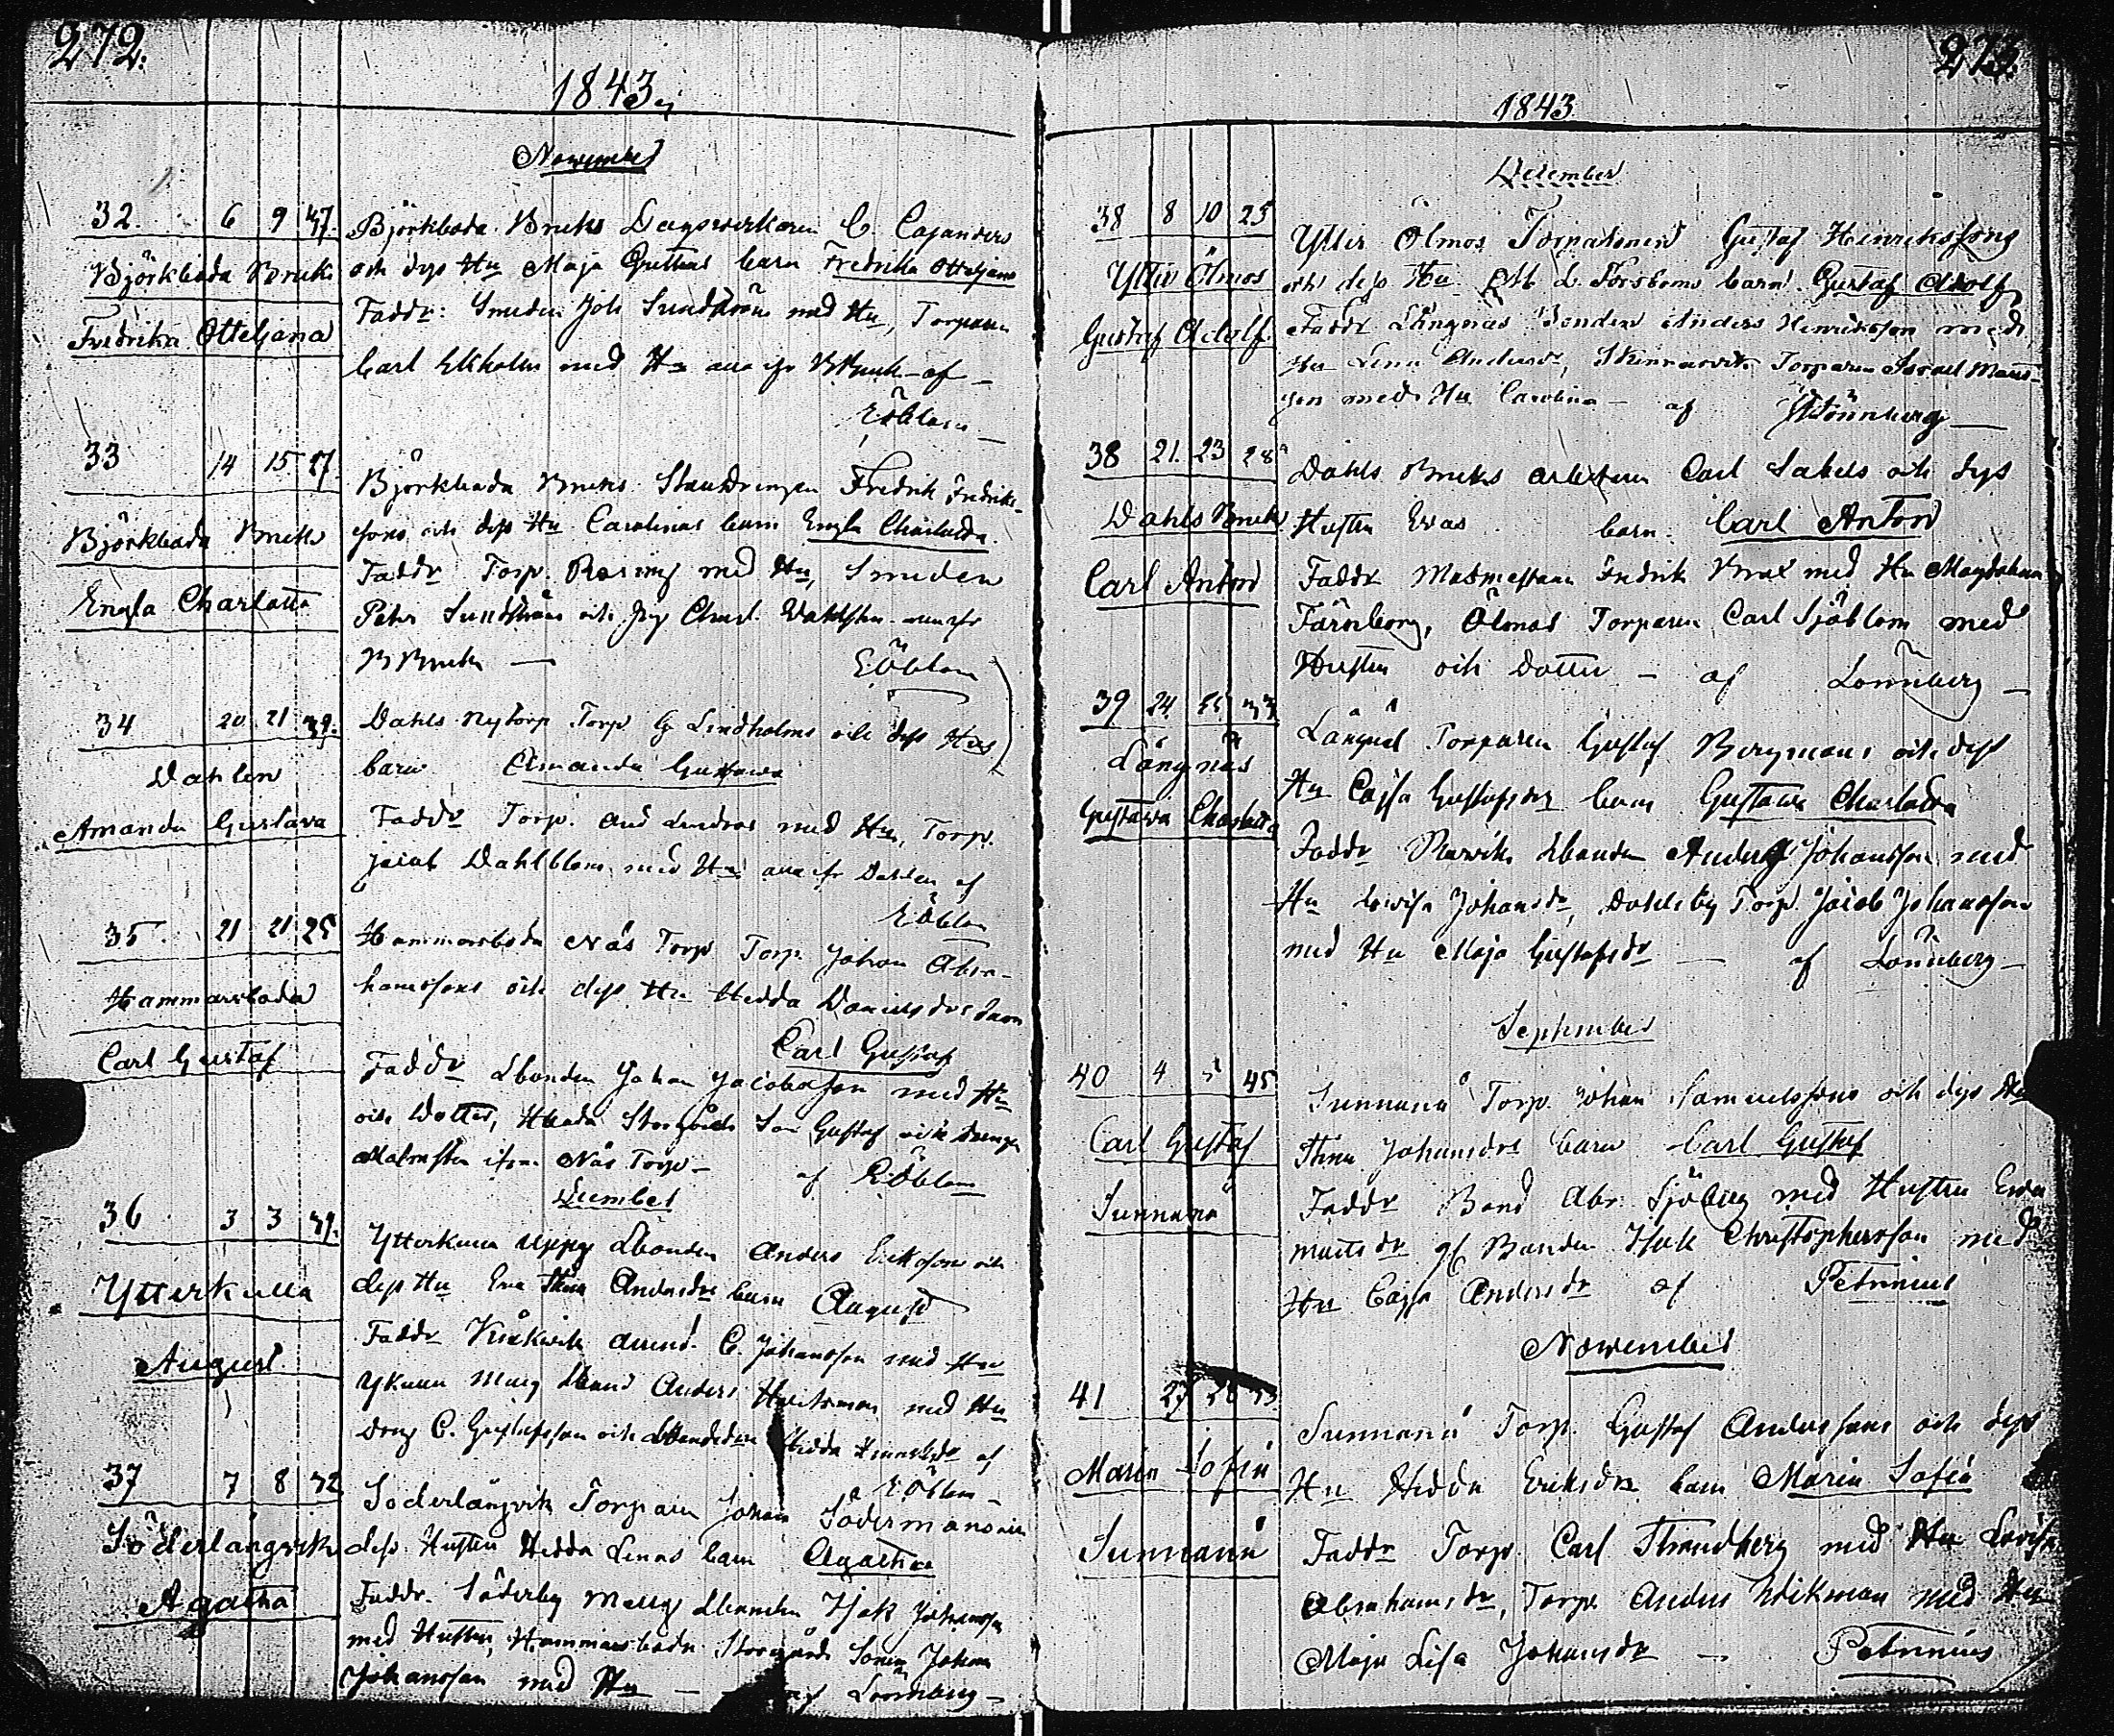 272.
1843
November
32. 6 9 47.
Björkboda Bruk
Fredrika Otteljana
Björkboda Bruks Dagsverkaren C. Cajanders
och dess Hu Maja Grettas barn Fredrika Otteljana
Faddr: Smeden Joh Sundström med Hu, Torparen
Carl Ekholm med Hu BBruk af
EÖblom
33 14 15 27.
Björkboda Bruk
Engla Charlotta
Björkboda Bruks Fredrik Fredriks-
sons och dess Hu Carolinas barn Engla Charlotta.
Faddr Torp. Rosing med Hu, Smeden
Peter Sundström och Charl. Dahlsten
BBruk —
EÖblom
34 20 21 39.
Dahlen
Amanda Gustava
Dahls Nytorp Torp G Lindholms och dess Hus
barn Amanda Gustawa
Faddr Torp. And Lindros med Hu, Torp.
Jacob Dahlblom med Hu Dahlen af
EÖblom
35. 21 21 25
Hammarsboda
Carl Gustaf
Hammarsboda Näs Torp Torp. Johan Abra-
hamssons och dess Hu Hedda Danielsdrs barn
Carl Gustaf
Faddr Lbonden Johan Jacobsson med Hu
och Dotter, Storgårds Son Gustaf och
Malmsten Näs Torp —
af EÖblom
December
36 3 3 39.
Ytterkulla
August
Ytterkulla Uppg Lbonden Anders Erikssons och
dess Hu Eva Stina Andersdrs barn August
Faddr C. Johansson med Hu
Ykulla Anders med Hu
Dreng C. Gustafsson och Hedda af
EÖblom —
37 7 8 32
Söderlångvik
Agatha
Söderlångvik Torparen Johan Södermans och
dess Hustru Hedda Lenas barn Agatha
Faddr. Söderby Lbonden Isak Johansson
med Hustru, Hammarsboda Storgårds Sonen Johan
Johansson med Hu — af Lönnberg —
273.
1843.
December
38 8 10 25
Ytter Ölmos
Gustaf Adolf.
Ytter Ölmos Torparens Gustaf Henrikssons
och dess Hu L. Forsboms barn Gustaf Adolf
Faddr Långnäs Bonden Anders Henriksson med
Hu Lena Andersdr, Skinnarvik Torparen Israel Mats-
son med Hu Carolina — af Lönnberg —
38 21. 23 28
Dahls Bruk
Carl Anton
Dahls Bruks arbetaren Carl Sabels och dess
Hustru Evas barn. Carl Anton
Faddr Masmestaren Fredrik med Hu Magdalena
Färnborg, Ölmos Torparen Carl Sjöblom med
Hustru och dotter — af Lönnberg —
39 24. 25 33
Långnäs
Gustawa Charlotta
Långnäs Torparen Gustaf Bergmans och dess
Hu Cajsa Gustafsdrs barn Gustawa Charlotta
Faddr Lbonden Anders Johansson med
Hu Lovisa Johansdr, Dahlsby Torp. Jacob Johansson
med Hu Maja Gustafsdr — af Lönnberg —
September
40 4 5 45
Carl Gustaf
Sunnanå
Sunnanå Torp. Johan Samuelssons och dess Hu
Stina Johansdrs barn Carl Gustaf
Faddr Bond Abr. Sjöberg med Hustru Eva
Mattsdr Bonden Isak Christophersson med
Hu Cajsa Andersdr af Petrinius
November
41 27 28 33.
Maria Sofia
Sunnanå
Sunnanå Torp. Gustaf Anderssons och dess
Hu Hedda Eriksdrs barn Maria Sofia
Faddr Torp Carl Strandberg med Hu Lovisa
Abrahamsdr, Torp. Anders Wikman med Hu
Maja Lisa Johansdr — Petrinius